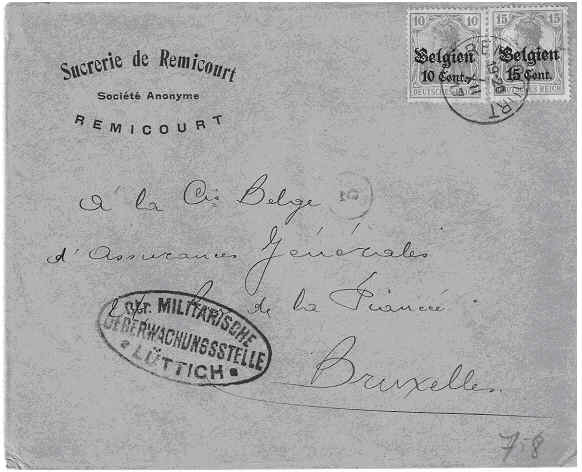 Sucrerie de Remicourt
Société Anonyme
REMICOURT
10 10
Belgien
10 Cent.
15 15
Belgien
15 Cent.
DEUTSCHES REICH
à la Cie Belge
d'Assurances Générales
de la Fiancée
Bruxelles
MILITÄRISCHE
UEBERWACHUNGSSTELLE
LÜTTICH
7.8